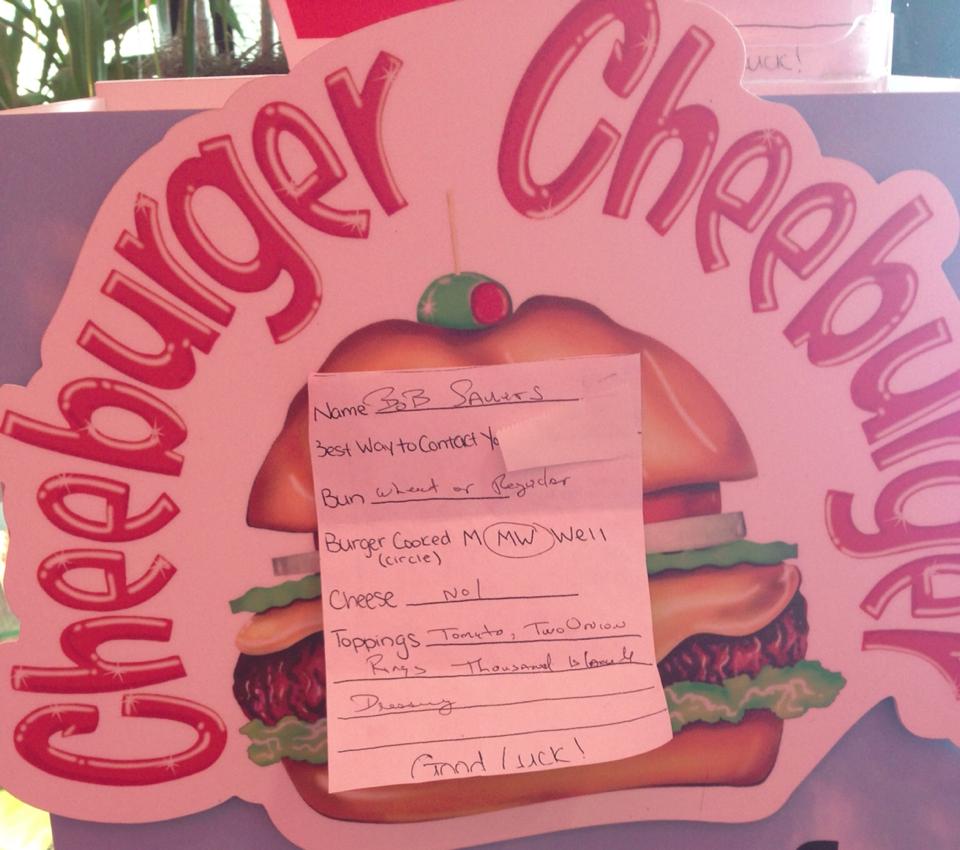 Cheeburger Cheeburger
uck!
Name BOB Sauers
Best Way to Contact Yo
Bun wheat or Regular
Burger Cooked M MW Well
(circle)
Cheese No!
Toppings Tomato, Two Onion
Rings Thousand Island
Dressing
Good luck!